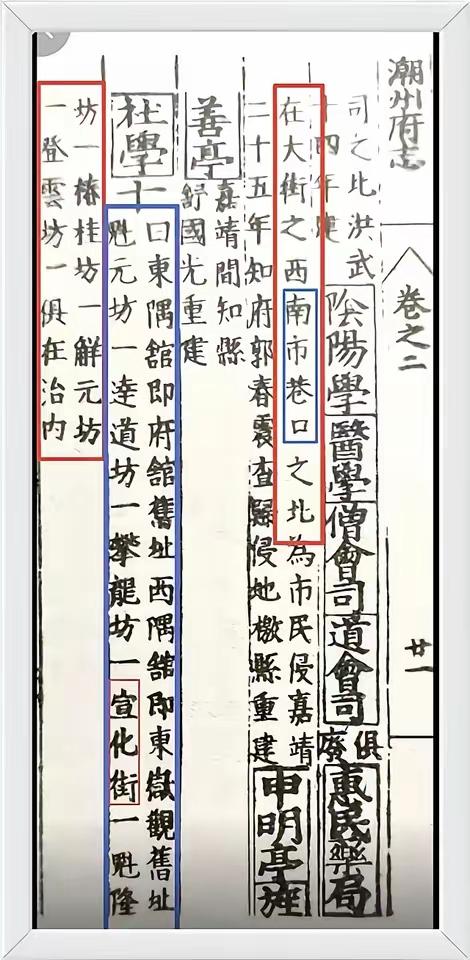 潮州府志
卷之二
廿一
司之北洪武
十四年建
陰陽學醫學僧會司道會司
俱
廢
惠民藥局
在大街之西南市巷口之北為市民侵嘉靖
二十五年知府郭春震查縣侵地檄縣重建
申明亭旌
善亭
嘉靖間知縣
舒國光重建
社學十
曰東隅舘即府舘舊址西隅舘即東嶽觀舊址
魁元坊一達道坊一攀龍坊一宣化街一魁隆
坊一椿桂坊一解元坊
一登雲坊一俱在治内